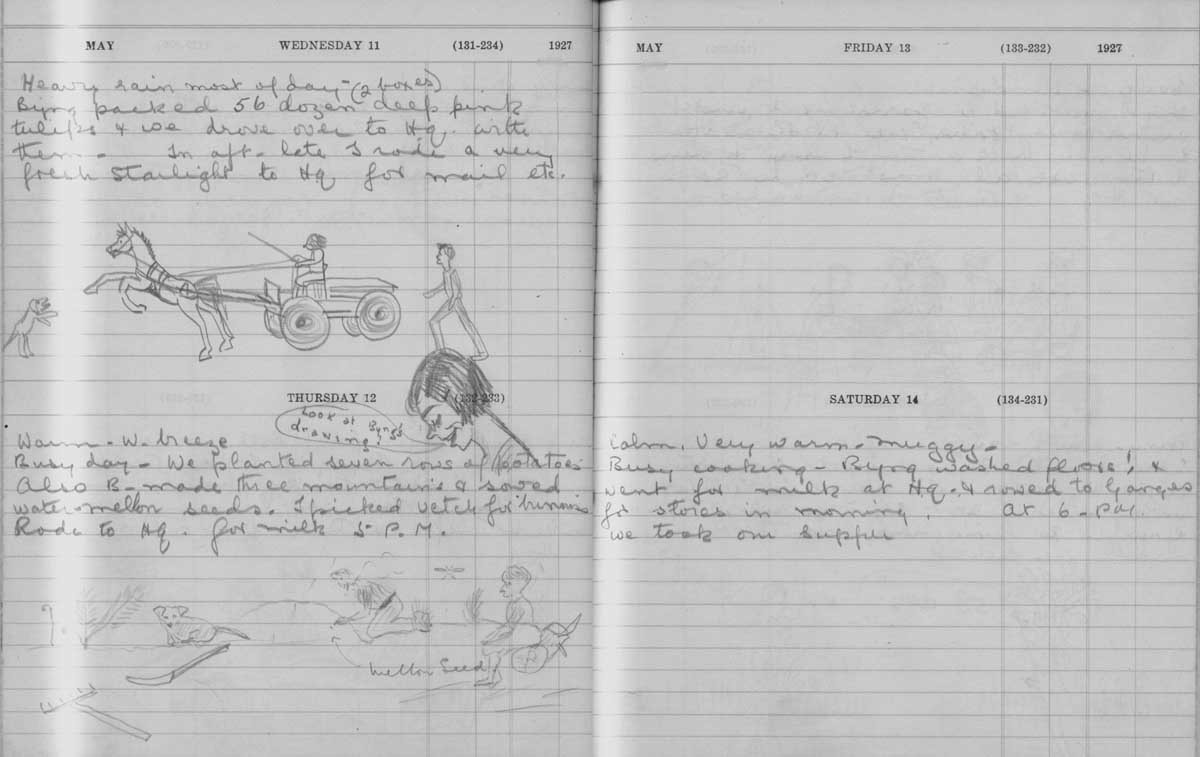 MAY WEDNESDAY 11 (131-234) 1927
Heavy rain most of day - (2 boxes)
Byng packed 56 dozen deep pink
tulips & we drove over to Hq. with
them - In aft - late I rode a very
fresh Starlight to Hq for mail etc.
THURSDAY 12 (132-233)
Look at Byng's
drawing!
Warm - W. breeze
Busy day - We planted seven rows of potatoes
Also B - made three mountains & sowed
water mellon seeds. I picked vetch for
Rode to Hq. for milk 5 P.M.
Mellon Seed
MAY FRIDAY 13 (133-232) 1927
SATURDAY 14 (134-231)
Calm. Very warm - muggy -
Busy cooking - Byng washed floors! &
went for milk at Hq. & rowed to Ganges
for stores in morning. At 6 - P.M.
we took our supper